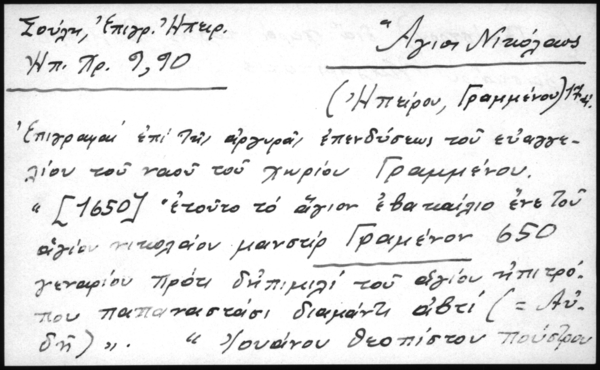 Σούλη, Ἐπιγρ. Ἠπειρ.
Ἠπ. Χρ. 9, 90
Ἅγιος Νικόλαος
(Ἠπείρου, Γραμμένου)
Ἐπιγραφαὶ ἐπὶ τῆς ἀργυρᾶς ἐπενδύσεως τοῦ εὐαγγε-
λίου τοῦ ναοῦ τοῦ χωρίου Γραμμένου.
" [1650] ἐτοῦτο τό ἅγιον ἐβαγκαίλιο ἐνε τοῦ
ἁγίου νικολαίου μανστίρ Γραμένον 650
γεναρίου πρότι δηπιμιλί τοῦ ἁγίου ἠπιτρό-
που παπαναστάσι διαμάντι ἀβτί (= Αὐ-
δῆ)". " Ἰουάνου θεοπίστου πούστρου